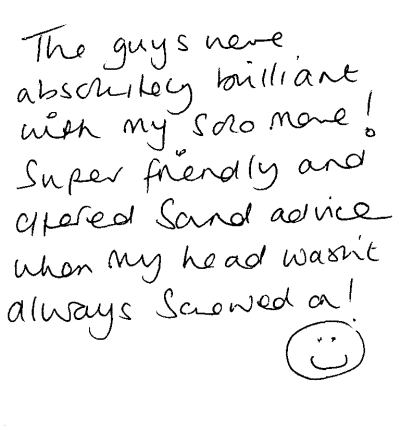 The guys were
absolutely brilliant
with my solo move!
Super friendly and
offered sound advice
when my head wasn't
always screwed on!